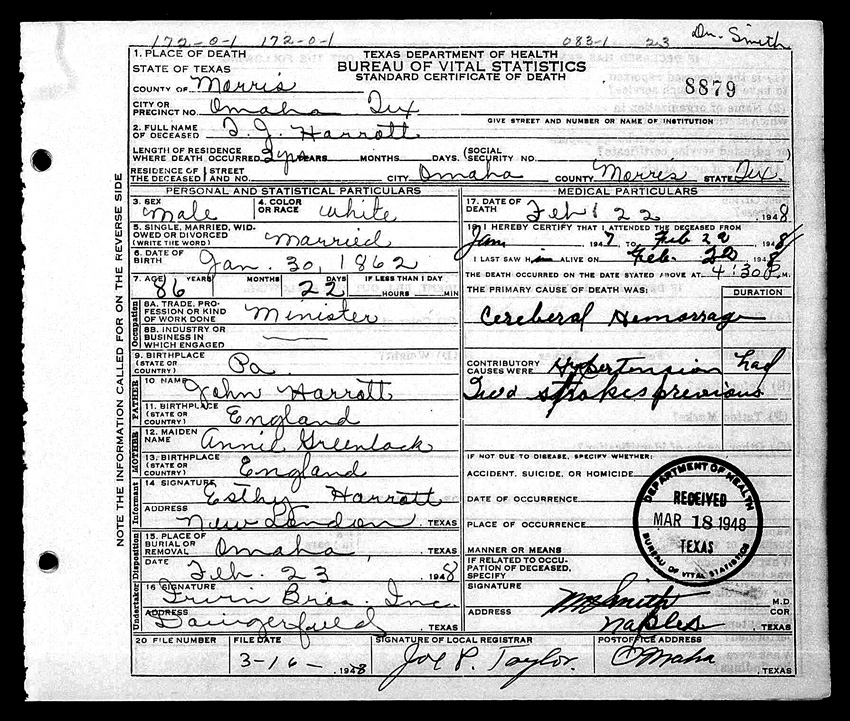 172-0-1 172-0-1 083-1 23 Dr. Smith
TEXAS DEPARTMENT OF HEALTH
BUREAU OF VITAL STATISTICS
STANDARD CERTIFICATE OF DEATH
8879
1. PLACE OF DEATH
STATE OF TEXAS
COUNTY OF Morris
CITY OR
PRECINCT NO. Omaha Tex
GIVE STREET AND NUMBER OR NAME OF INSTITUTION
2. FULL NAME
OF DECEASED T. J. Harrott
LENGTH OF RESIDENCE
WHERE DEATH OCCURRED 3 yrs YEARS MONTHS DAYS. (SOCIAL SECURITY NO.
RESIDENCE OF THE DECEASED STREET AND NO. CITY Omaha COUNTY Morris STATE Tex.
PERSONAL AND STATISTICAL PARTICULARS
3. SEX Male
4. COLOR OR RACE White
5. SINGLE, MARRIED, WIDOWED OR DIVORCED
(WRITE THE WORD) Married
6. DATE OF
BIRTH Jan. 30, 1862
7. AGE YEARS MONTHS DAYS IF LESS THAN 1 DAY
86 22 HOURS MIN
Occupation
8A. TRADE, PROFESSION OR KIND
OF WORK DONE Minister
8B. INDUSTRY OR
BUSINESS IN
WHICH ENGAGED
9. BIRTHPLACE
(STATE OR
COUNTRY) Pa.
FATHER
10 NAME John Harrott
11. BIRTHPLACE
(STATE OR
COUNTRY) England
MOTHER
12. MAIDEN
NAME Annie Greenlock
13. BIRTHPLACE
(STATE OR
COUNTRY) England
Informant
14 SIGNATURE Esthy Harrott
ADDRESS New London, TEXAS
Disposition
15. PLACE OF
BURIAL OR
REMOVAL Omaha, TEXAS
DATE Feb. 23 1948
Undertaker
16 SIGNATURE Irwin Bros. Inc.
ADDRESS Daingerfield, TEXAS
MEDICAL PARTICULARS
17. DATE OF
DEATH Feb 22, 1948
18. I HEREBY CERTIFY THAT I ATTENDED THE DECEASED FROM
Jan 1947 TO Feb 22 1948
I LAST SAW Him ALIVE ON Feb. 22 1948
THE DEATH OCCURRED ON THE DATE STATED ABOVE AT 4:30 P. M.
THE PRIMARY CAUSE OF DEATH WAS: DURATION
Cereberal Hemorrage
CONTRIBUTORY
CAUSES WERE: Hypertension had
Two strokes previous
IF NOT DUE TO DISEASE, SPECIFY WHETHER:
ACCIDENT, SUICIDE, OR HOMICIDE
DATE OF OCCURRENCE
PLACE OF OCCURRENCE
MANNER OR MEANS
IF RELATED TO OCCUPATION OF DECEASED,
SPECIFY
SIGNATURE Wm Smith M.D.
COR.
ADDRESS Naples, TEXAS
DEPARTMENT OF HEALTH
RECEIVED
MAR 18 1948
TEXAS
BUREAU OF VITAL STATISTICS
20 FILE NUMBER
FILE DATE 3-16- 1948
SIGNATURE OF LOCAL REGISTRAR Joe P. Taylor.
POSTOFFICE ADDRESS Omaha, TEXAS
NOTE THE INFORMATION CALLED FOR ON THE REVERSE SIDE